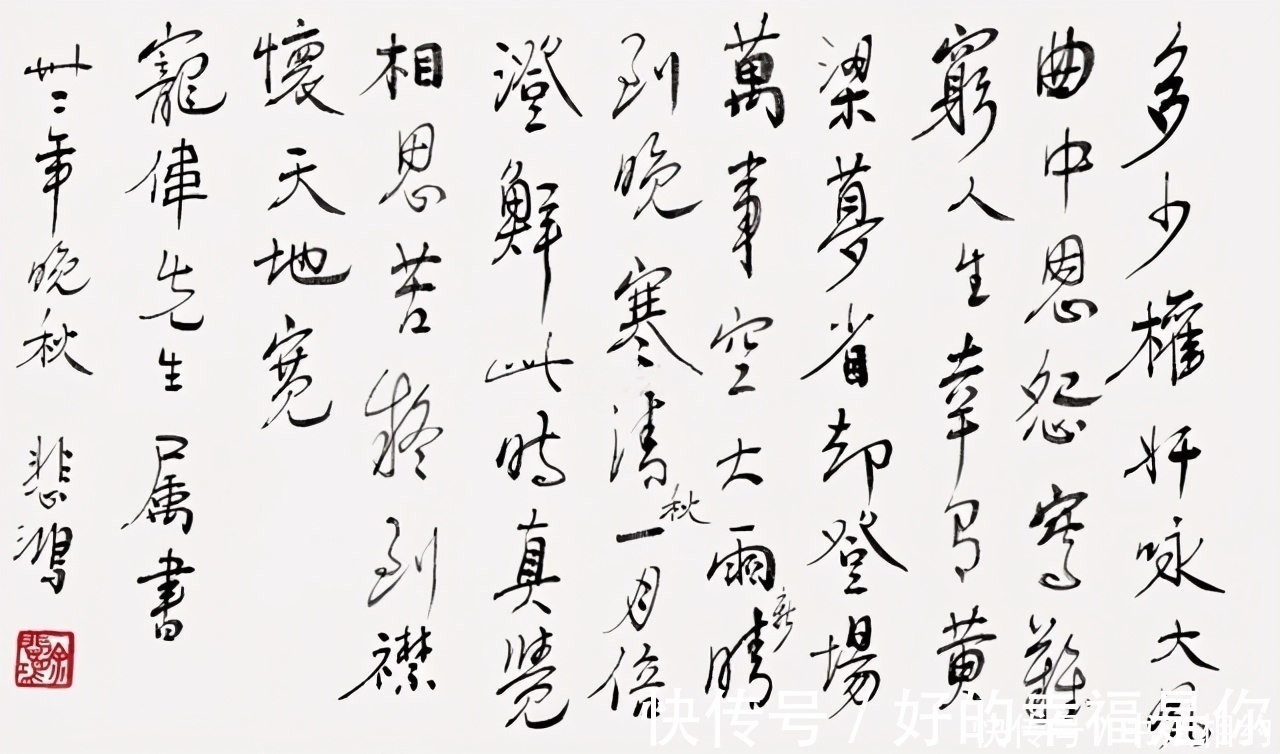 多少權奸咏大風
曲中恩怨寫難
窮人生幸有黄
粱夢省却登場
萬事空大雨新晴
到晚寒清秋一月倍
澄鮮此時真覺
相思苦移到襟
懷天地寬
寵偉先生属書
卅二年晚秋 悲鴻
快传号 / 好的幸福是你